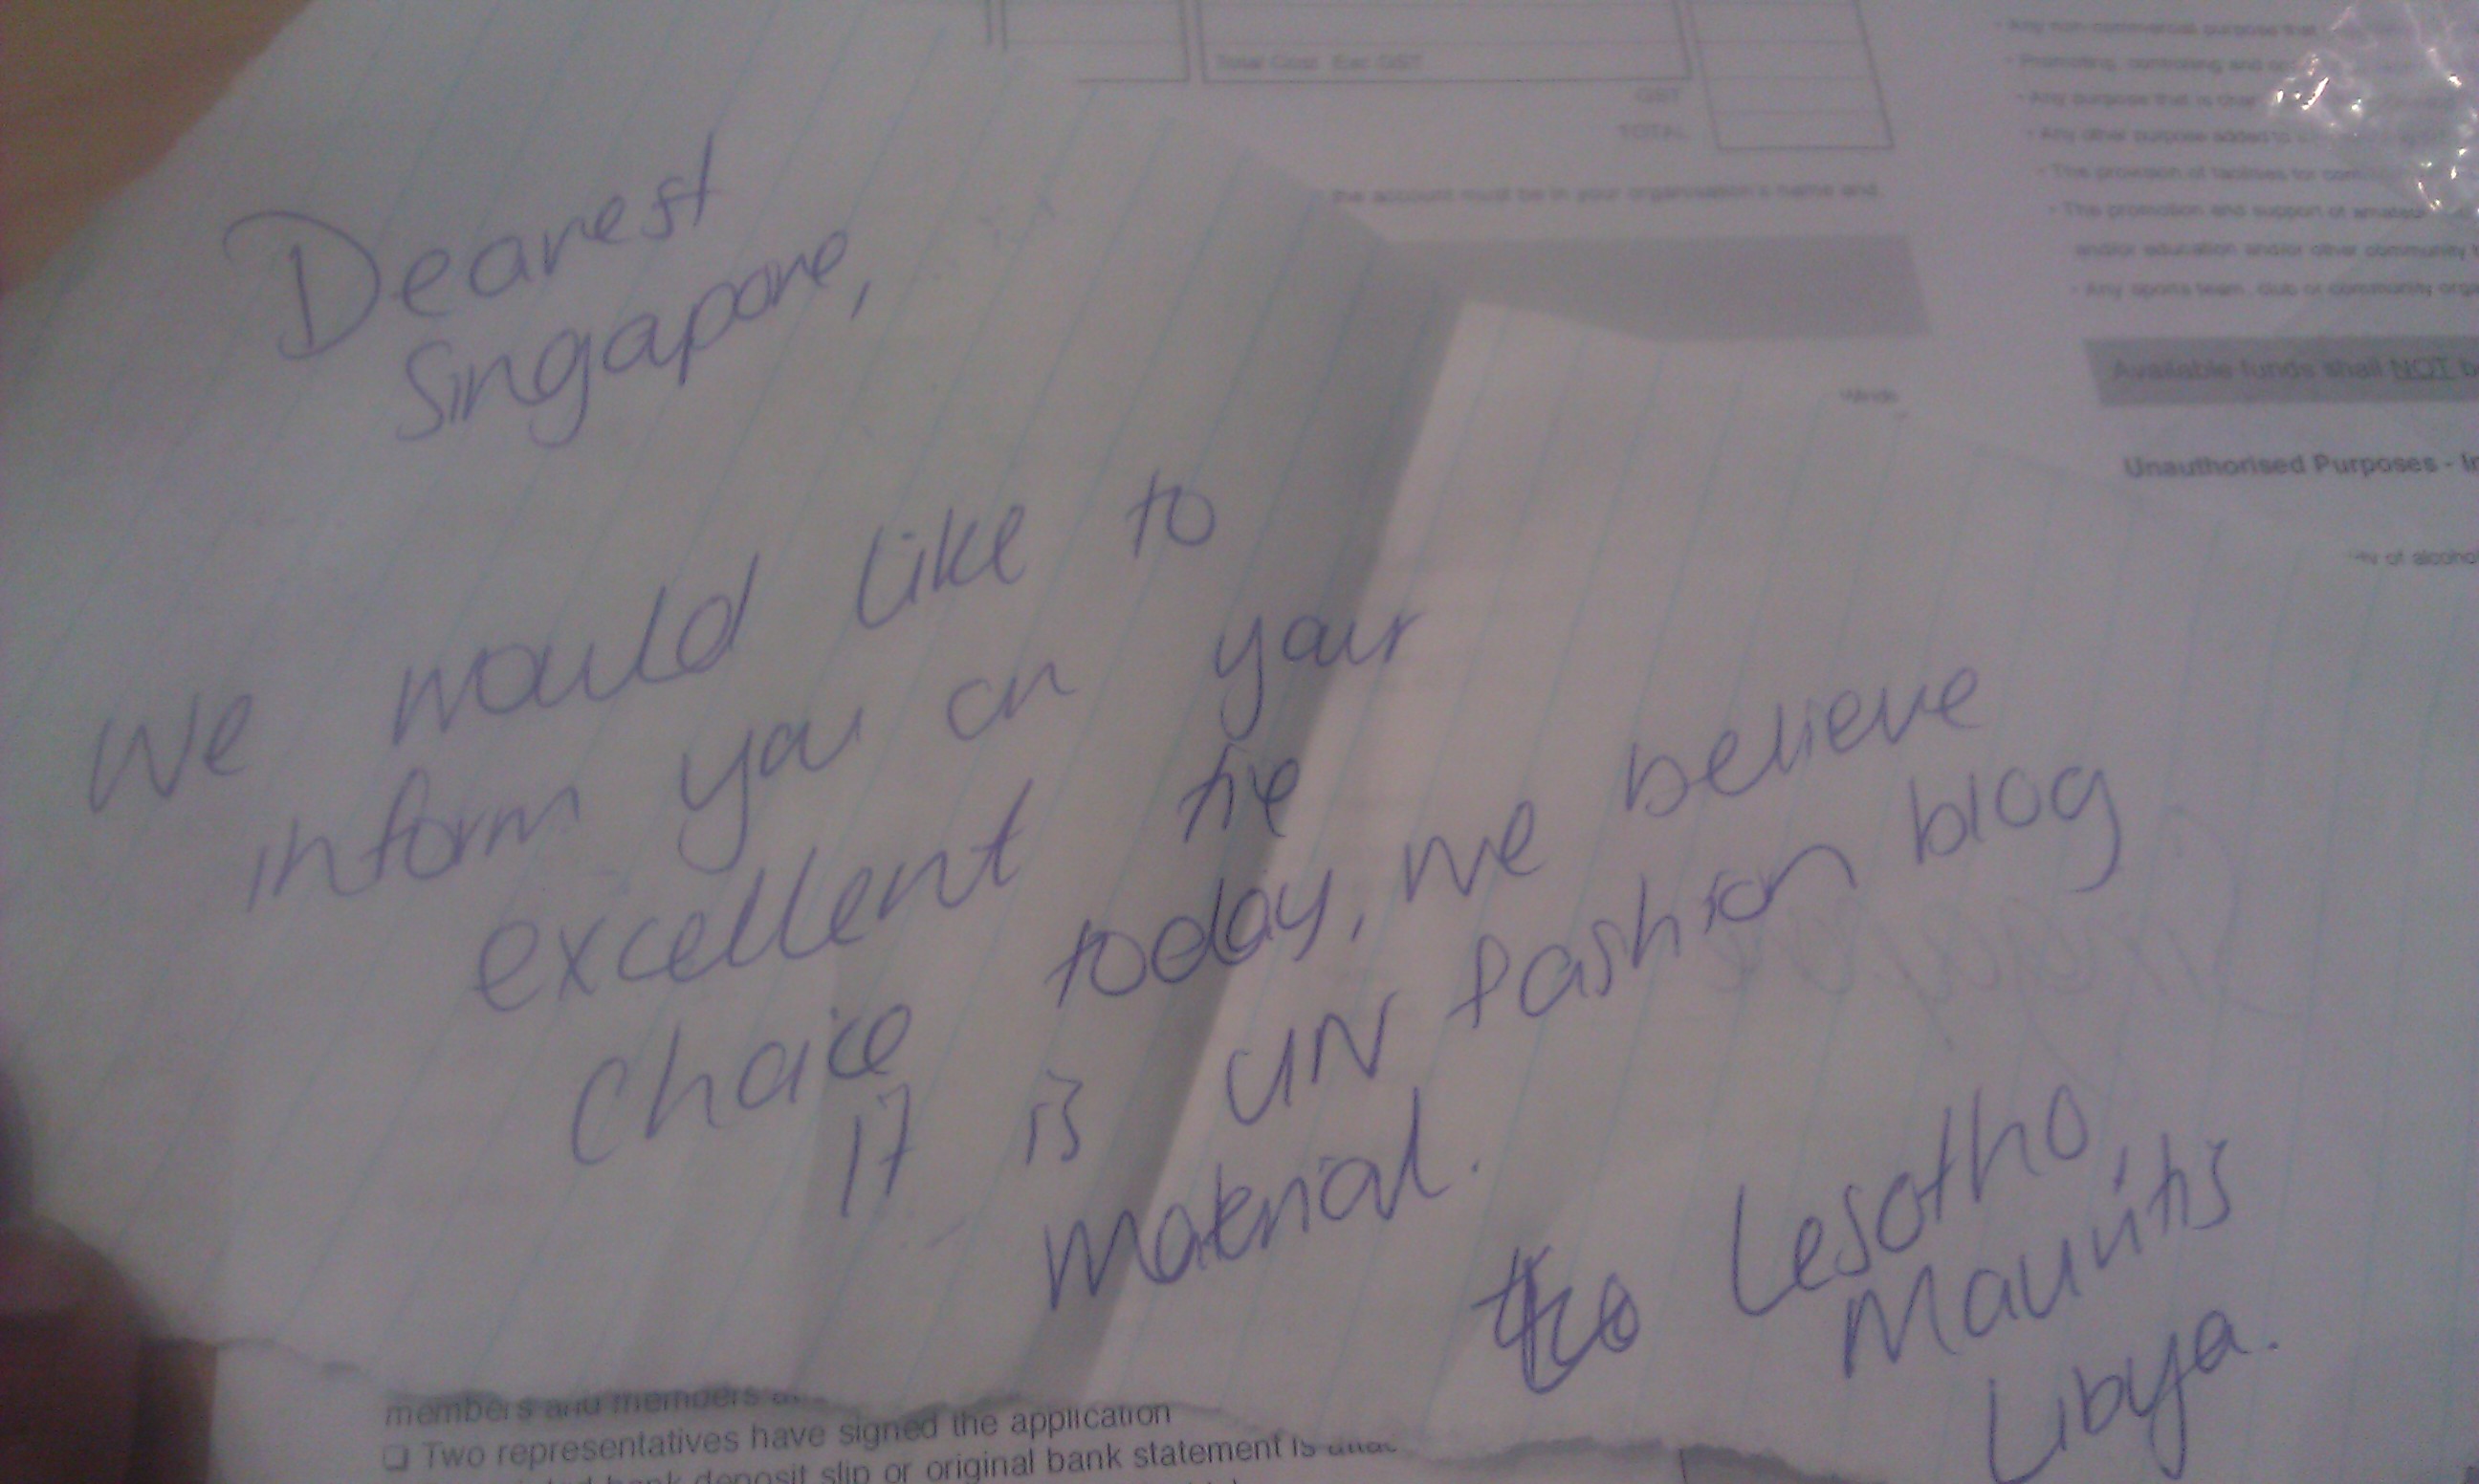 Dearest
Singapore,
We would like to
inform you on your
excellent tie
choice today, we believe
it is UN fashion blog
material.
Lesotho,
Mauritis
Libya.
Total Cost Exc GST
GST
TOTAL
the account must be in your organisation's name and
• Any non-commercial purpose that
• Promoting, controlling and
• Any purpose that is
• Any other purpose added to
• The provision of facilities for
• The promotion and support of amateur
and/or education and/or other community
• Any sports team, club or community
Available funds shall NOT
Unauthorised Purposes -
of
members and members
❑ Two representatives have signed the application
bank deposit slip or original bank statement is